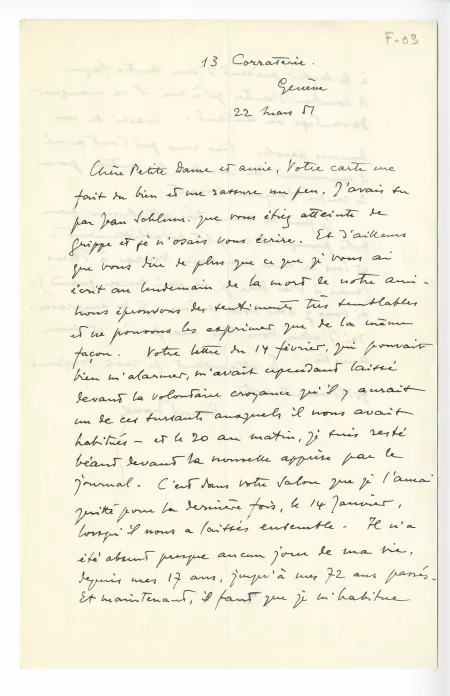 F-03
13 Corraterie.
Genève
22 mars 51
Chère Petite Dame et amie, Votre carte me
fait du bien et me rassure un peu. J'avais su
par Jean Schlum. que vous étiez atteinte de
grippe et je n'osais vous écrire. Et d'ailleurs
que vous dire de plus que ce que je vous ai
écrit au lendemain de la mort de notre ami -
nous éprouvons des sentiments très semblables
et ne pouvons les exprimer que de la même
façon. Votre lettre du 14 février, qui pouvait
bien m'alarmer, m'avait cependant laissé
devant la volontaire croyance qu'il y aurait
un de ces sursauts auxquels il nous avait
habitués - et le 20 au matin, je suis resté
béant devant la nouvelle apprise par le
journal. C'est dans votre salon que je l'aurai
quitté pour la dernière fois, le 14 Janvier,
lorsqu'il nous a laissés ensemble. Il n'a
été absent presque aucun jour de ma vie,
depuis mes 17 ans, jusqu'à mes 72 ans passés.
Et maintenant, il faut que je m'habitue